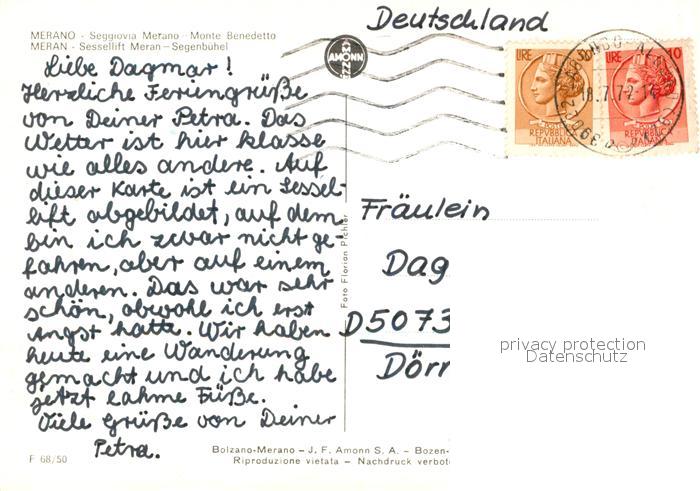 MERANO - Seggiovia Merano - Monte Benedetto
MERAN - Sessellift Meran - Segenbühel
Deutschland
AMONN
LIRE 50
LIRE
REPVBBLICA
ITALIANA
REPVBBLICA
ITALIANA
18.7.72-14
Liebe Dagmar!
Herzliche Feriengrüße
von Deiner Petra. Das
Wetter ist hier klasse
wie alles andere. Auf
dieser Karte ist ein Sessel-
lift abgebildet, auf dem
bin ich zwar nicht ge-
fahren, aber auf einem
anderen. Das war sehr
schön, obwohl ich erst
Angst hatte. Wir haben
heute eine Wanderung
gemacht und ich habe
jetzt lahme Füße.
Viele Grüße von Deiner
Petra.
Foto Florian Pichler
Fräulein
Dag
D5073
Dörr
privacy protection
Datenschutz
F 68/50
Bolzano-Merano - J. F. Amonn S. A. - Bozen-
Riproduzione vietata - Nachdruck verbot